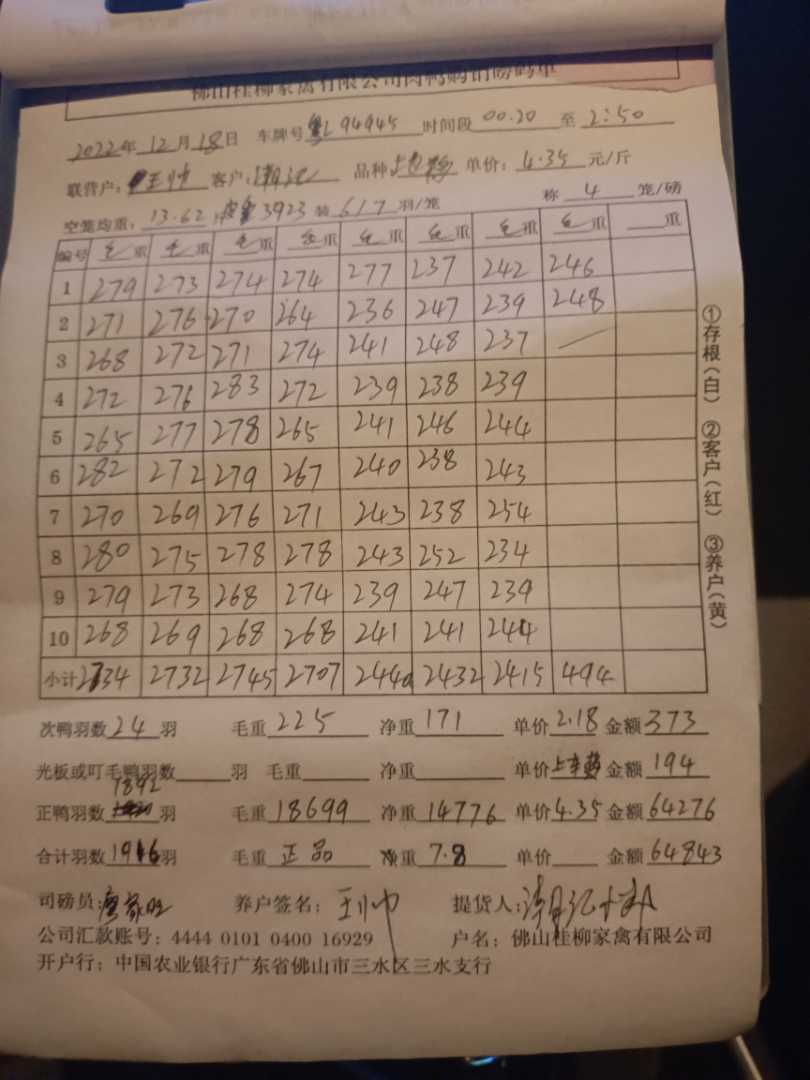 佛山桂柳家禽有限公司肉鸭购销磅码单
2022年12月18日 车牌号粤L94945 时间段00.20至2:50
联营户:王帅 客户: 品种 单价:4.35元/斤
空笼均重:13.62 皮重3923 装6/7羽/笼 称4笼/磅
编号 毛重 毛重 毛重 毛重 毛重 毛重 毛重 毛重 重
1 279 273 274 274 277 237 242 246
2 271 276 270 264 236 247 239 248
3 268 272 271 274 241 248 237 /
4 272 276 283 272 239 238 239
5 265 277 278 265 241 246 244
6 282 272 279 267 240 238 243
7 270 269 276 271 243 238 254
8 280 275 278 278 243 252 234
9 279 273 268 274 239 247 239
10 268 269 268 268 241 241 244
小计 2734 2732 2745 2707 2440 2432 2415 494
次鸭羽数24羽 毛重225 净重171 单价2.18 金额373
光板或叮毛鸭羽数 羽 毛重 净重 单价 金额194
正鸭羽数1892羽 毛重18699 净重14776 单价4.35 金额64276
合计羽数1916羽 毛重正品 净重7.8 单价 金额64843
司磅员: 养户签名:王帅 提货人:
公司汇款账号:4444 0101 0400 16929 户名:佛山桂柳家禽有限公司
开户行:中国农业银行广东省佛山市三水区三水支行
①存根(白) ②客户(红) ③养户(黄)